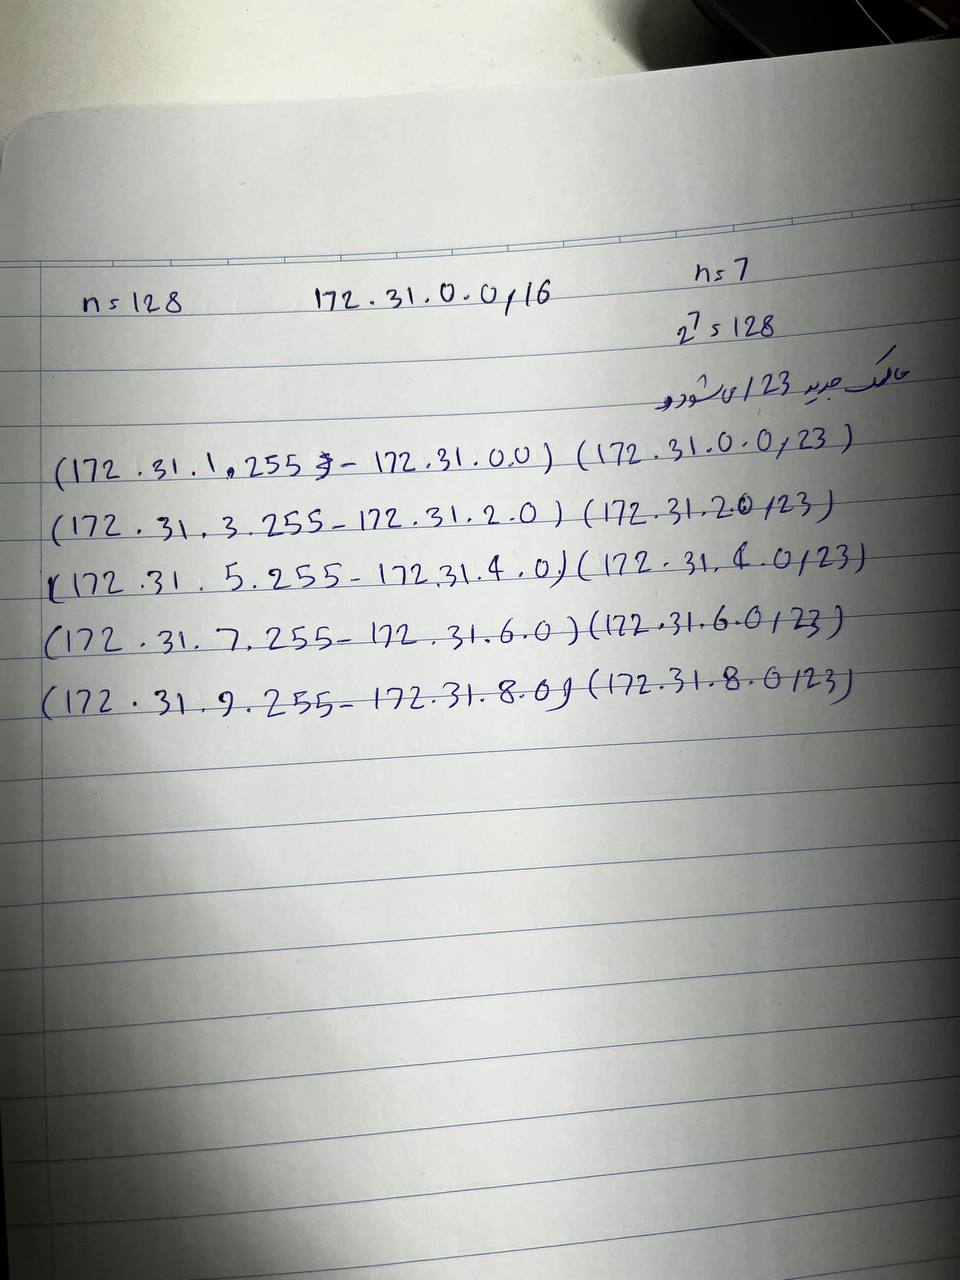 n = 128 172.31.0.0/16 n = 7
2^7 = 128
ماسک جدید 23/ می شود و
(172.31.1.255 - 172.31.0.0) (172.31.0.0/23)
(172.31.3.255 - 172.31.2.0) (172.31.2.0/23)
(172.31.5.255 - 172.31.4.0) (172.31.4.0/23)
(172.31.7.255 - 172.31.6.0) (172.31.6.0/23)
(172.31.9.255 - 172.31.8.0) (172.31.8.0/23)